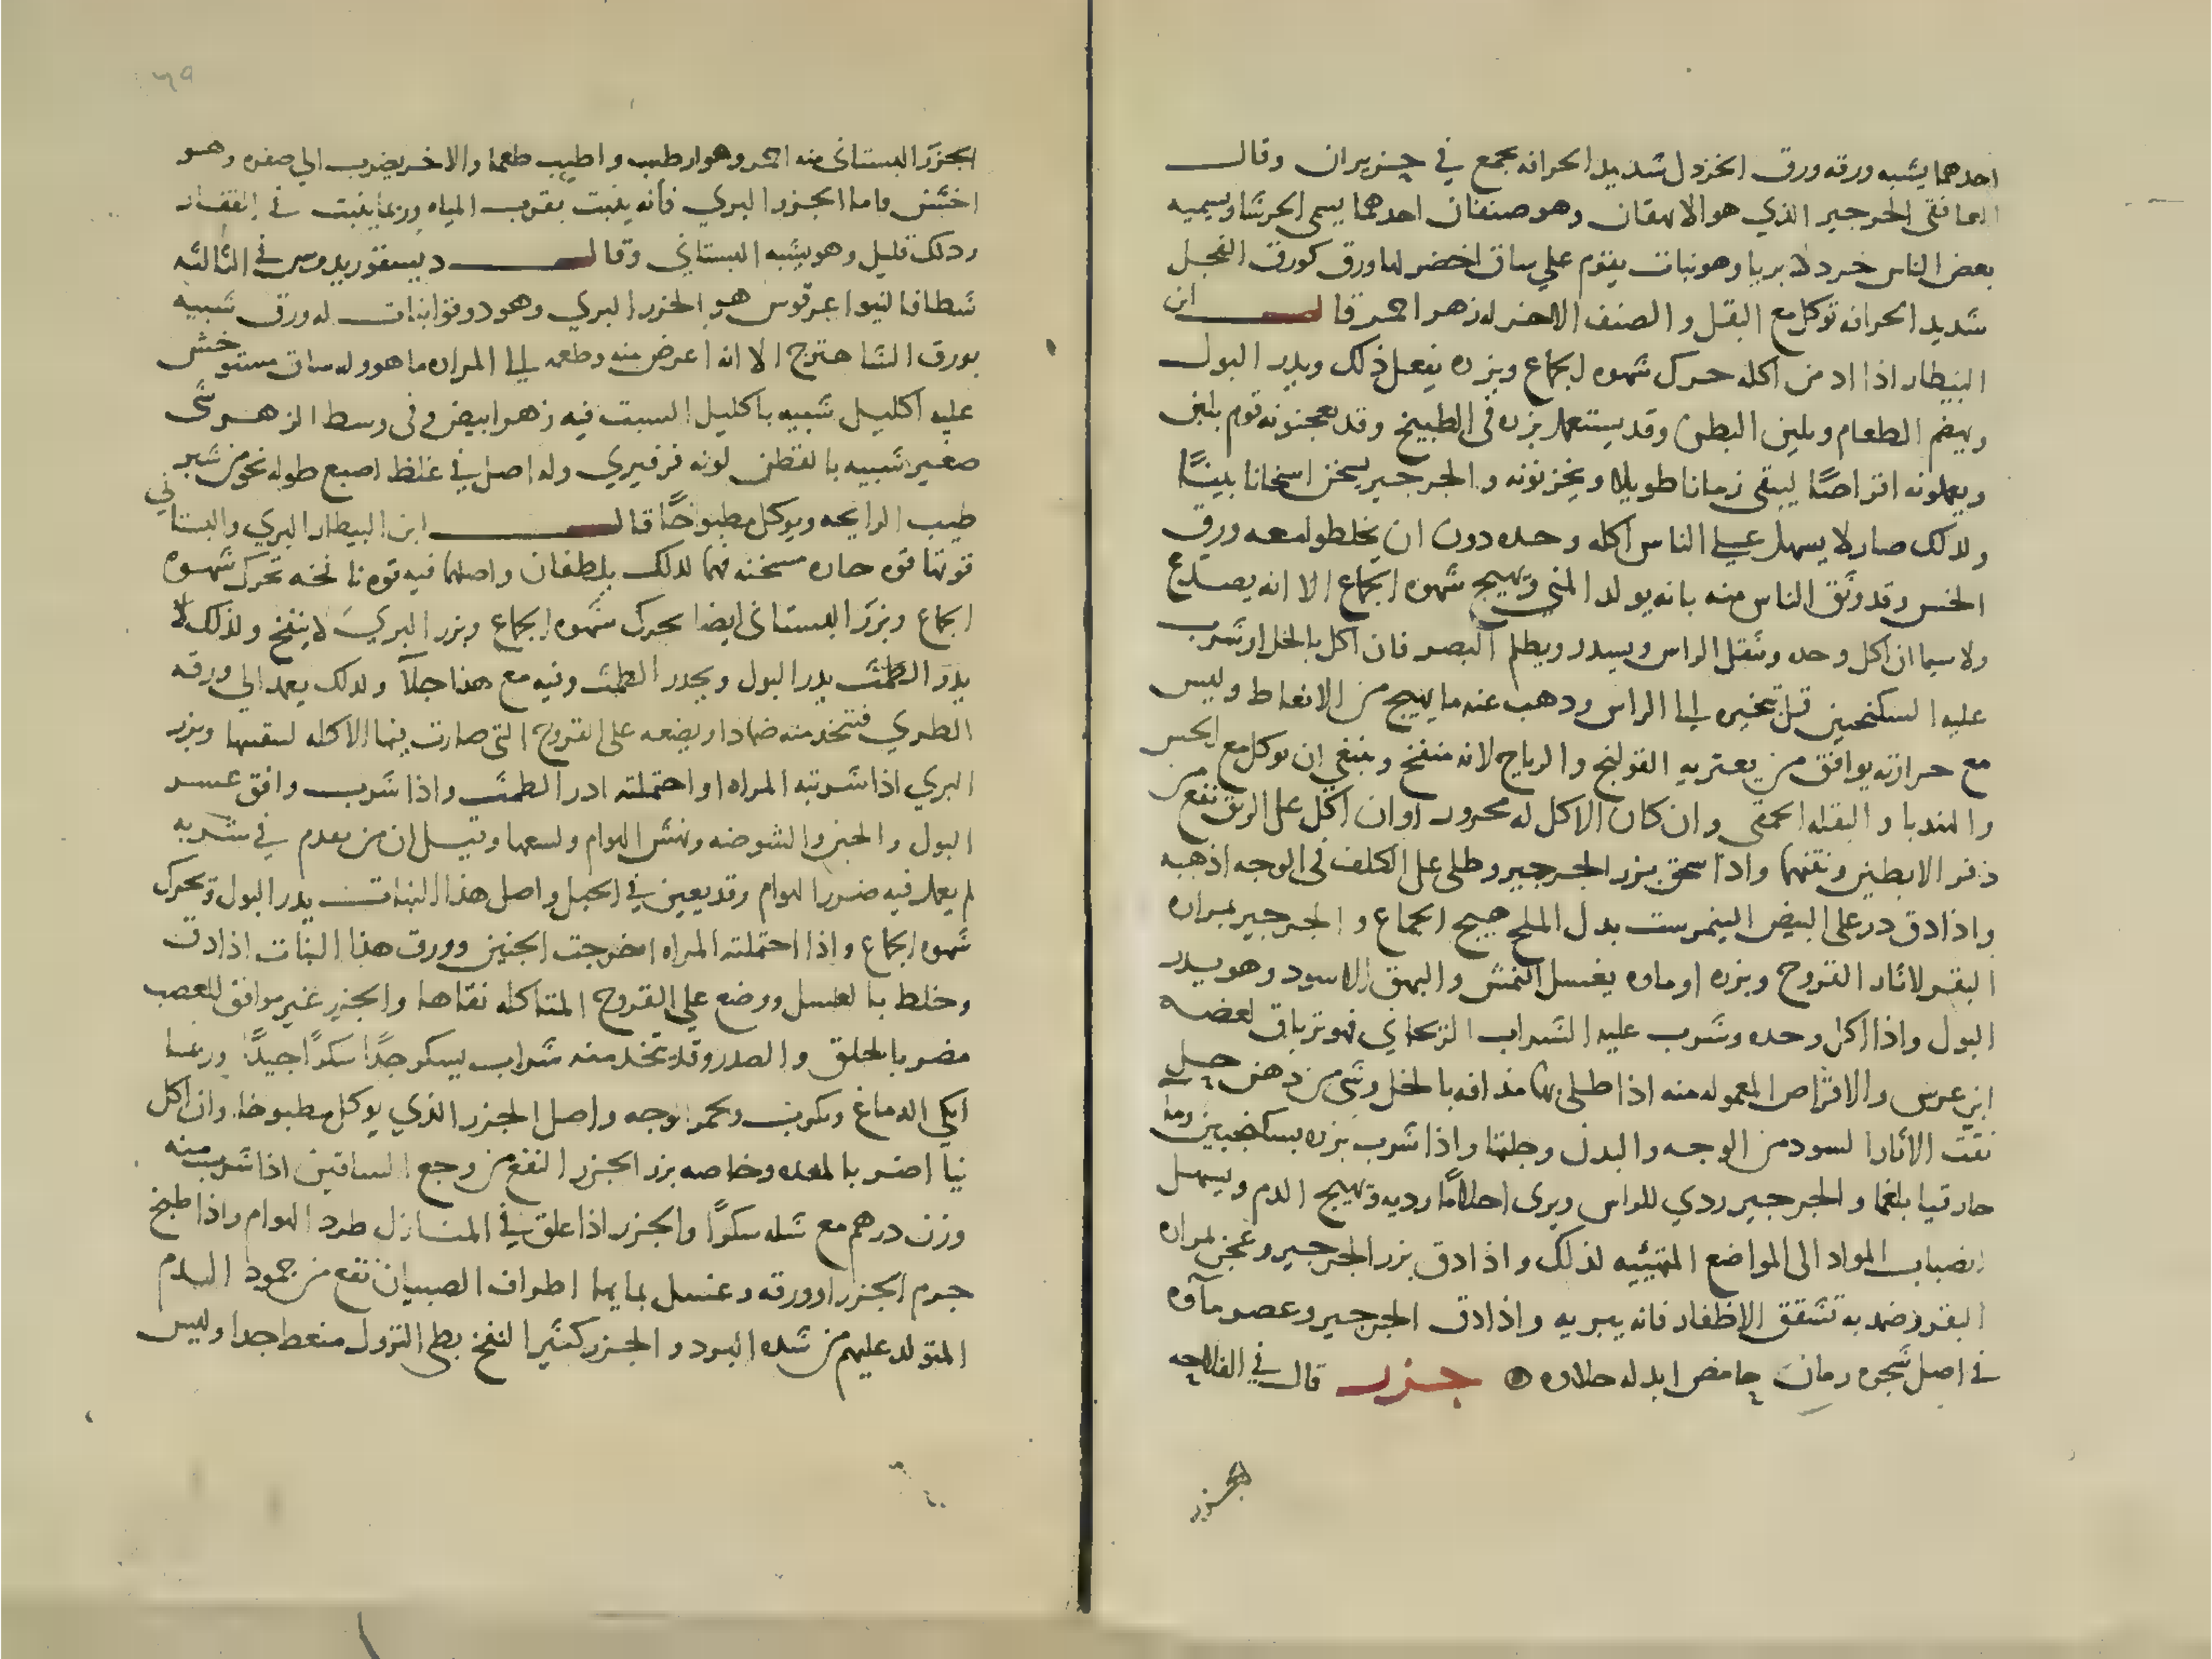 احدهما يشبه ورقه ورق الخردل شديد الحرافه يجمع في حزيران وقال
الغافقي الجرجير الذي هو الايهقان وهو صنفان احدهما يسمى الحرشا ويسميه
بعض الناس خردلا بريا وهو نبات يقوم علي ساق اخضر لها ورق كورق الفجل
شديد الحرافه توكل مع البقل والصنف الاخر له زهر احمر قال ابن
البيطار اذا ادمن اكله حرك شهوه الجماع وبزره يفعل ذلك ويدر البول
ويهضم الطعام ويلين البطن وقد يستعمل بزره في الطبيخ وقد يعجنونه قوم بلبن
ويعملونه اقراصًا ليبقى زمانا طويلا ويخزنونه والجرجير يسخن اسخانا بينًا
ولذلك صار لا يسهل علي الناس اكله وحده دون ان يخلطوا معه ورق
الخس وقد وثق الناس منه بانه يولد المني ويهيج شهوه الجماع الا انه يصدع
ولا سيما ان اكل وحده وثقل الراس ويسدر ويظلم البصر فان اكل بالخل او شرب
عليه السكنجبين قل تبخيره الي الراس ودهب عنه ما يهيج من الانعاظ وليس
مع حرارته يوافق من يعتريه القولنج والرياح لانه منفخ وينبغي ان يوكل مع الخس
والهندبا والبقله الحمقى وان كان الاكل له محرور او ان اكل على الريق نفع من
ذفر الابطين ونتنهما واذا سحق بزر الجرجير وطلى على الكلف في الوجه اذهبه
واذا دق در على البيض النيمرست بدل الملح هيج الجماع والجرجير بمراره
البقر لاثار القروح وبزره او ماوه يغسل النمش والبهق الاسود وهو يدر
البول واذا اكل وحده وشرب عليه الشراب الريحاني فهو ترياق لعضه
ابن عرس والاقراص المعموله منه اذا طلى بها مذافه بالخل وشي من دهن حل
نقت الاثار السود من الوجه والبدن وجلتها واذا شرب بزره بسكنجبين وما
حار قيا بلغما والجرجير ردي للراس ويرى احلامًا رديه ويهيج الدم ويسهل
انصباب المواد الى المواضع المتهيئيه لذلك واذا دق بزر الجرجير وعجن بمراره
البقر وضمد به تشقق الاظفار فانه يبريه واذا دق الجرجير وعصر مآوه
في اصل شجره رمان حامض ابدله حلاوه جزر قال في الفلاحه
الجزر
٦٩
الجزر البستاني منه احمر وهو ارطب واطيب طعما والاخر يضرب الي صفره وهو
اخشن فاما الجزر البري فانه ينبت بقرب المياه وربما ينبت في القفار
ودلك قليل وهو يشبه البستاني وقال ديسقوريدوس في الثالثه
شطافالنيوا عرقوس هو الجزر البري وهو دوقوا نبات له ورق شبيه
بورق الشاهترج الا انه اعرض منه وطعمه الي المراره ما هو وله ساق مستو خشن
عليه اكليل شبيه باكليل الشبت فيه زهر ابيض وفي وسط الزهر شي
صغير شبيه بالقطن لونه فرفيري وله اصل في غلظ اصبع طوله نحو من شبر
طيب الرايحه ويوكل مطبوخًا قال ابن البيطار البري والبستاني
قوتها قوه حاره مسخنه فهما لدلك يلطفان واصلهما فيه قوه نافخه تحرك شهوه
الجماع وبزر البستاني ايضا يحرك شهوه الجماع وبزر البري لا ينفخ ولذلك لا
يدر الطمث يدر البول ويحدر الطمث وفيه مع هذا جلآ ولدلك يعمد الي ورقه
الطري فتتخد منه ضمادا ويضعه على القروح التي صارت فيها الاكله لينقيها وبزر
البري اذا شربته المراه او احتملته ادر الطمث واذا شرب وافق عسر
البول والحبن والشوصه ونهش الهوام ولسعها وقيل ان من يقدم في شربه
لم يعمل فيه ضرر الهوام وقد يعين في الحبل واصل هذا النبات يدر البول ويحرك
شهوه الجماع واذا احتملته المراه اخرجت الجنين وورق هذا النبات اذا دق
وخلط بالعسل ووضع علي القروح المتاكله نقاها والجزر غير موافق للعصب
مضر بالحلق والصدر وقد يتخد منه شراب يسكر جدًا سكرًا جيدًا وربما
ابكي الدماغ ويحمر الوجه واصل الجزر الذي يوكل مطبوخا وان اكل
نيا اضر بالمعده وخاصه بزر الجزر النفع من وجع الساقين اذا شرب منه
وزن درهم مع مثله سكرًا والجزر اذا علق في المنازل طرد الهوام واذا طبخ
جرم الجزر او ورقه وغسل بمايها اطراف الصبيان نفع من جمود الدم
المتولد عليهم من شده البرد والجزر كثير النفخ بطي النزول منعظ جدا وليس